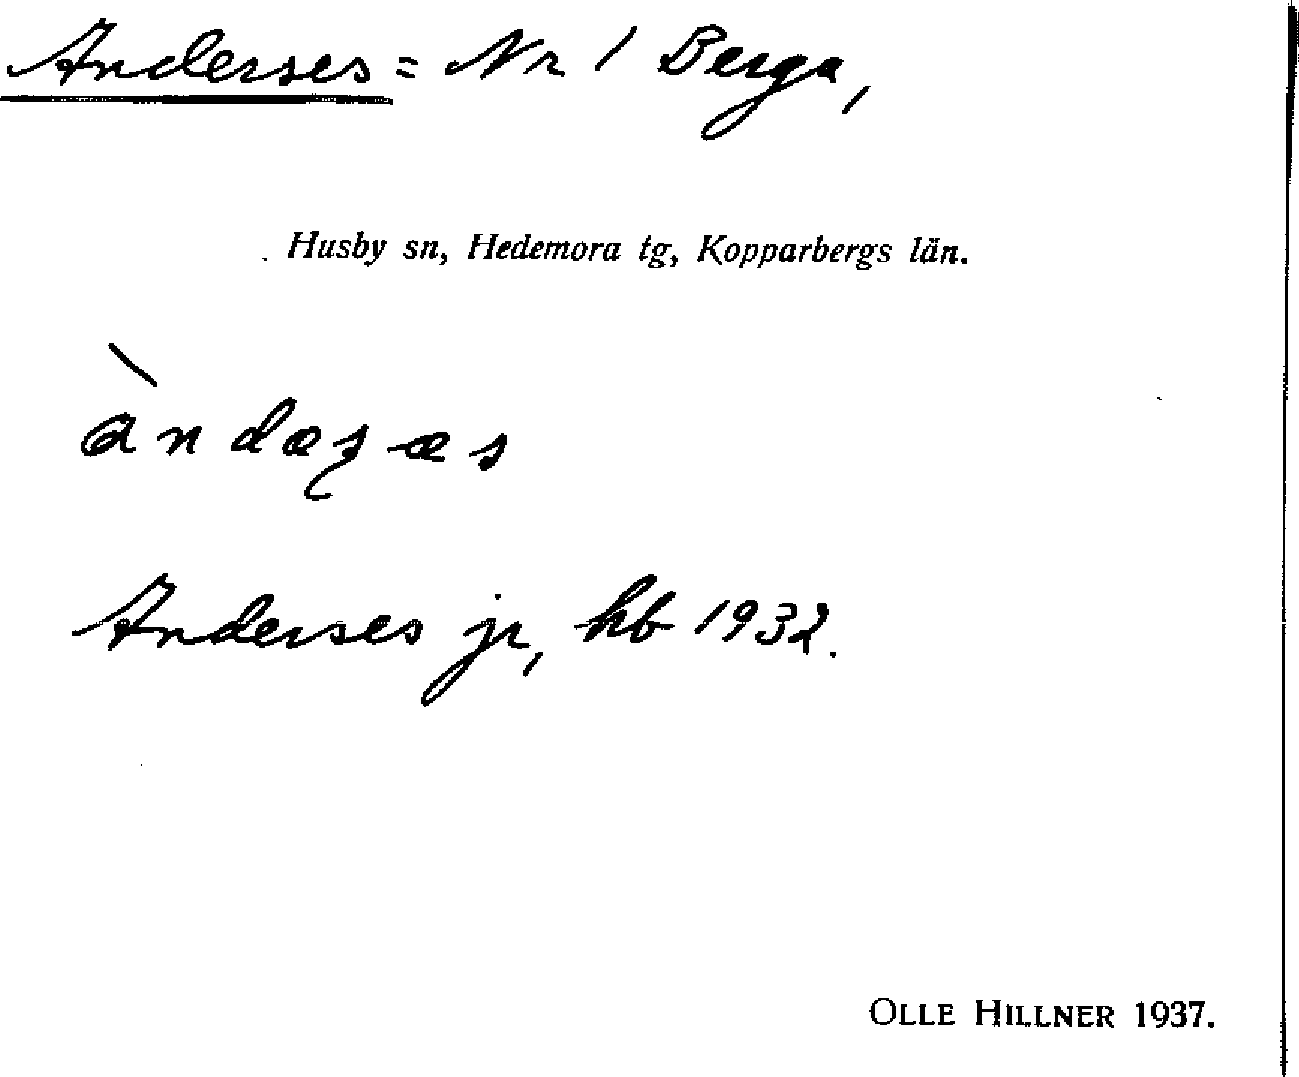 Anderses = Nr 1 Berga,
Husby sn, Hedemora tg, Kopparbergs län.
àndæʂæs
Anderses jr, hb 1932.
OLLE HILLNER 1937.